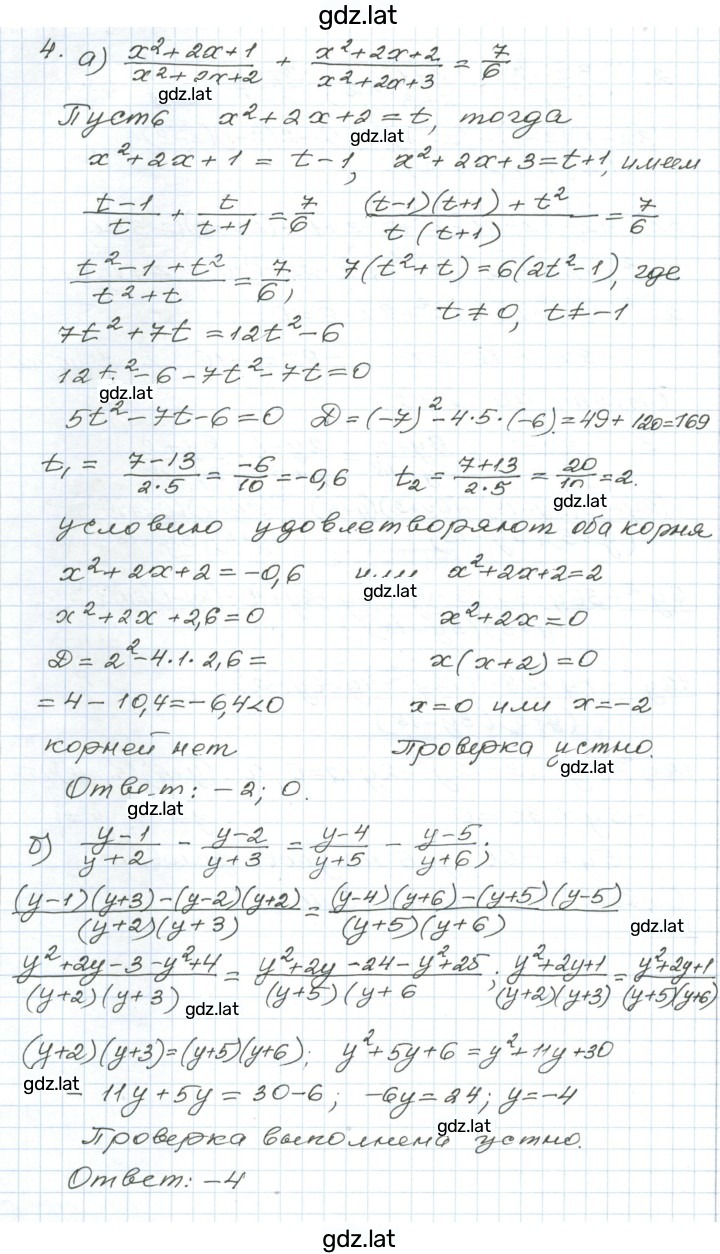 gdz.lat
4. а) (x²+2x+1)/(x²+2x+2) + (x²+2x+2)/(x²+2x+3) = 7/6
gdz.lat
Пусть x²+2x+2=t, тогда
gdz.lat
x²+2x+1 = t-1, x²+2x+3=t+1, имеем
(t-1)/t + t/(t+1) = 7/6 ((t-1)(t+1)+t²)/(t(t+1)) = 7/6
(t²-1+t²)/(t²+t) = 7/6, 7(t²+t)=6(2t²-1), где
t≠0, t≠-1
7t²+7t=12t²-6
12t²-6-7t²-7t=0
gdz.lat
5t²-7t-6=0 D=(-7)²-4·5·(-6)=49+120=169
t₁ = (7-13)/(2·5) = -6/10 = -0,6 t₂ = (7+13)/(2·5) = 20/10 = 2.
gdz.lat
условию удовлетворяют оба корня
x²+2x+2=-0,6 или x²+2x+2=2
gdz.lat
x²+2x+2,6=0 x²+2x=0
D=2²-4·1·2,6= x(x+2)=0
=4-10,4=-6,4<0 x=0 или x=-2
корней нет Проверка устно.
gdz.lat
Ответ: -2; 0.
gdz.lat
б) (y-1)/(y+2) - (y-2)/(y+3) = (y-4)/(y+5) - (y-5)/(y+6);
((y-1)(y+3)-(y-2)(y+2))/((y+2)(y+3)) = ((y-4)(y+6)-(y+5)(y-5))/((y+5)(y+6))
gdz.lat
(y²+2y-3-y²+4)/((y+2)(y+3)) = (y²+2y-24-y²+25)/((y+5)(y+6; (y²+2y+1)/((y+2)(y+3)) = (y²+2y+1)/((y+5)(y+6))
gdz.lat
(y+2)(y+3)=(y+5)(y+6); y²+5y+6=y²+11y+30
gdz.lat
- 11y+5y=30-6; -6y=24; y=-4
gdz.lat
Проверка выполнена устно.
Ответ: -4
gdz.lat